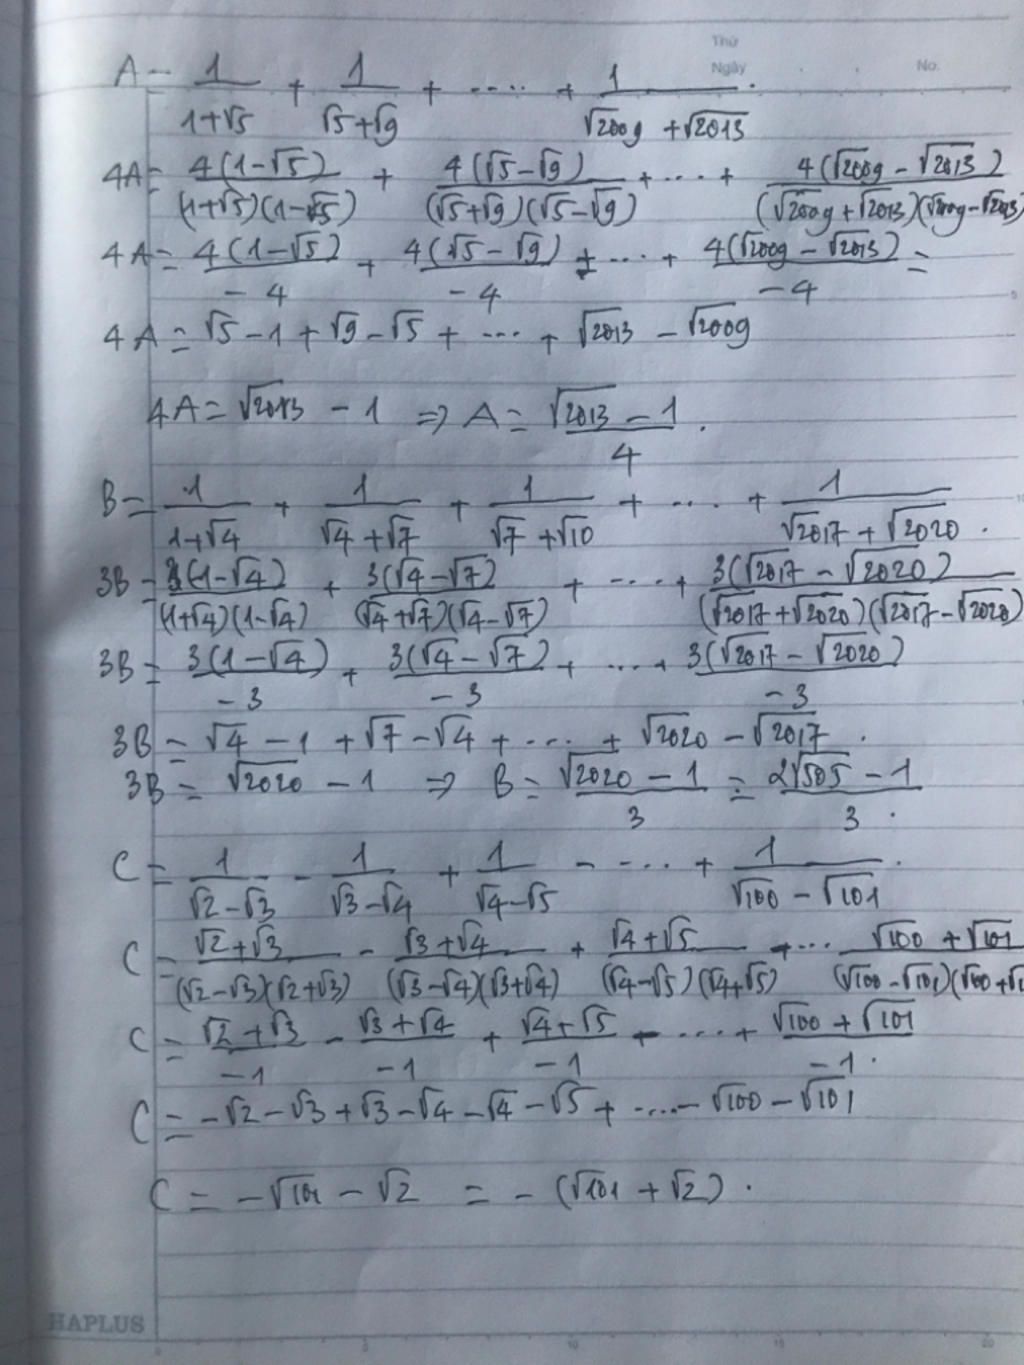 Thứ
Ngày . . No.
A = 1/(1+√5) + 1/(√5+√9) + .... + 1/(√2009 + √2013) .
4A = 4(1-√5)/((1+√5)(1-√5)) + 4(√5-√9)/((√5+√9)(√5-√9)) + ... + 4(√2009 - √2013)/((√2009+√2013)(√2009-√2013)
4A = 4(1-√5)/-4 + 4(√5-√9)/-4 + ... + 4(√2009 - √2013)/-4 =
4A = √5 - 1 + √9 - √5 + ... + √2013 - √2009
4A = √2013 - 1 ⇒ A = (√2013 - 1)/4 .
B = 1/(1+√4) + 1/(√4+√7) + 1/(√7+√10) + ... + 1/(√2017 + √2020) .
3B = 3(1-√4)/((1+√4)(1-√4)) + 3(√4-√7)/((√4+√7)(√4-√7)) + .... + 3(√2017 - √2020)/((√2017+√2020)(√2017-√2020)
3B = 3(1-√4)/-3 + 3(√4-√7)/-3 + .... + 3(√2017 - √2020)/-3
3B = √4 - 1 + √7 - √4 + .... + √2020 - √2017 .
3B = √2020 - 1 ⇒ B = (√2020 - 1)/3 = (2√505 - 1)/3 .
C = 1/(√2-√3) - 1/(√3-√4) + 1/(√4-√5) - .... + 1/(√100 - √101) .
C = (√2+√3)/((√2-√3)(√2+√3)) - (√3+√4)/((√3-√4)(√3+√4)) + (√4+√5)/((√4-√5)(√4+√5)) + ... (√100 + √101)/((√100-√101)(√100+√1
C = (√2+√3)/-1 - (√3+√4)/-1 + (√4+√5)/-1 - .... + (√100 + √101)/-1 .
C = -√2 - √3 + √3 - √4 - √4 - √5 + .... - √100 - √101
C = -√101 - √2 = - (√101 + √2) .
HAPLUS